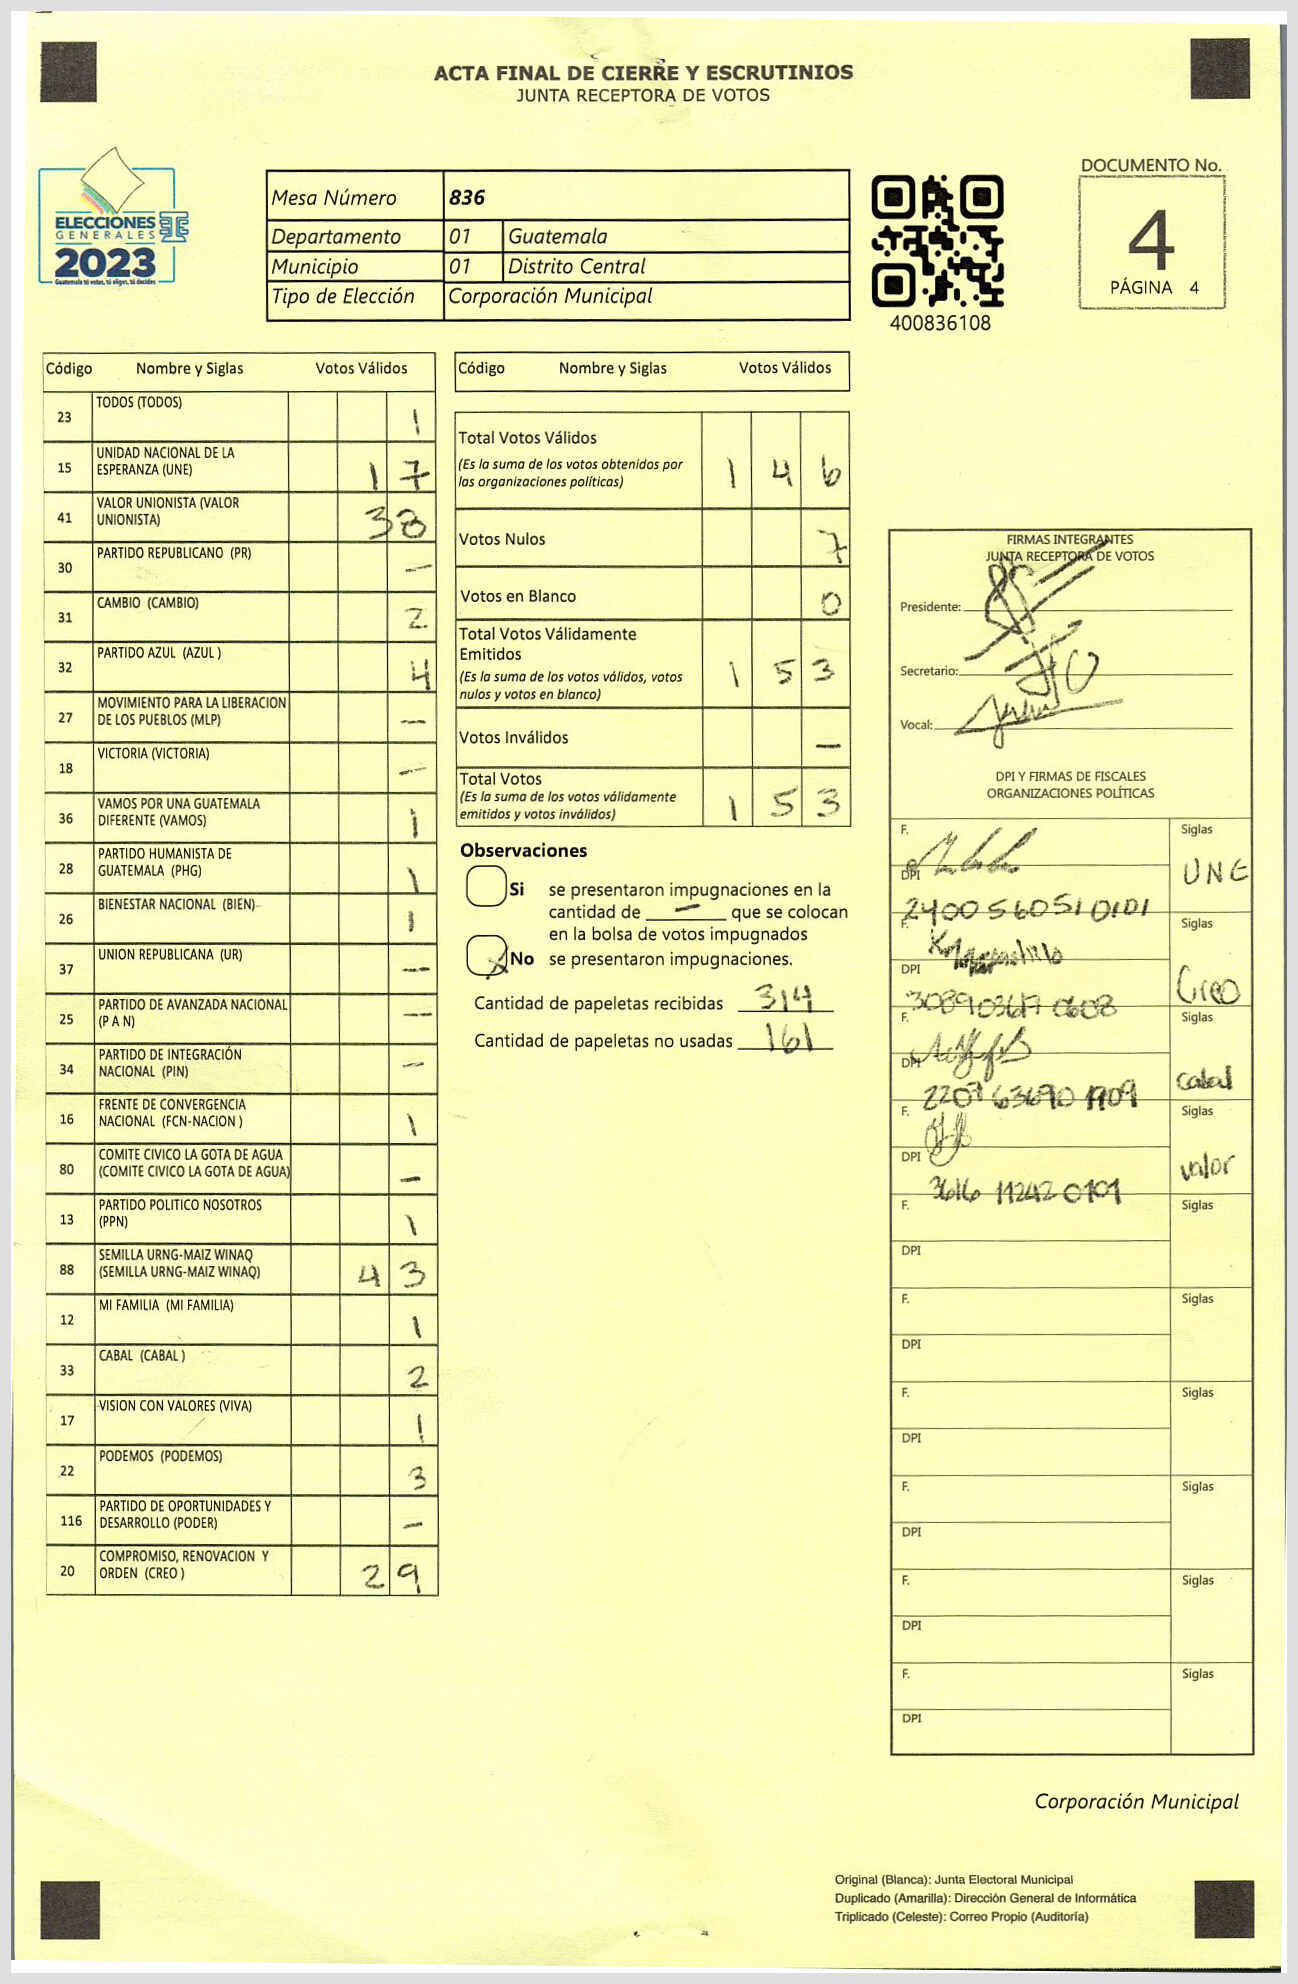 ACTA FINAL DE CIERRE Y ESCRUTINIOS
JUNTA RECEPTORA DE VOTOS
ELECCIONES
GENERALES
2023
Guatemala tú votas, tú eliges, tú decides
Mesa Número 836
Departamento 01 Guatemala
Municipio 01 Distrito Central
Tipo de Elección Corporación Municipal
400836108
DOCUMENTO No.
4
PÁGINA 4
Código Nombre y Siglas Votos Válidos
23 TODOS (TODOS) 1
15 UNIDAD NACIONAL DE LA ESPERANZA (UNE) 17
41 VALOR UNIONISTA (VALOR UNIONISTA) 38
30 PARTIDO REPUBLICANO (PR) —
31 CAMBIO (CAMBIO) 2
32 PARTIDO AZUL (AZUL ) 4
27 MOVIMIENTO PARA LA LIBERACION DE LOS PUEBLOS (MLP) —
18 VICTORIA (VICTORIA) —
36 VAMOS POR UNA GUATEMALA DIFERENTE (VAMOS) 1
28 PARTIDO HUMANISTA DE GUATEMALA (PHG) 1
26 BIENESTAR NACIONAL (BIEN) 1
37 UNION REPUBLICANA (UR) —
25 PARTIDO DE AVANZADA NACIONAL (P A N) —
34 PARTIDO DE INTEGRACIÓN NACIONAL (PIN) —
16 FRENTE DE CONVERGENCIA NACIONAL (FCN-NACION ) 1
80 COMITE CIVICO LA GOTA DE AGUA (COMITE CIVICO LA GOTA DE AGUA) —
13 PARTIDO POLITICO NOSOTROS (PPN) 1
88 SEMILLA URNG-MAIZ WINAQ (SEMILLA URNG-MAIZ WINAQ) 43
12 MI FAMILIA (MI FAMILIA) 1
33 CABAL (CABAL ) 2
17 VISION CON VALORES (VIVA) 1
22 PODEMOS (PODEMOS) 3
116 PARTIDO DE OPORTUNIDADES Y DESARROLLO (PODER) —
20 COMPROMISO, RENOVACION Y ORDEN (CREO ) 29
Código Nombre y Siglas Votos Válidos
Total Votos Válidos 146
(Es la suma de los votos obtenidos por
las organizaciones políticas)
Votos Nulos 7
Votos en Blanco 0
Total Votos Válidamente
Emitidos 153
(Es la suma de los votos válidos, votos
nulos y votos en blanco)
Votos Inválidos —
Total Votos 153
(Es la suma de los votos válidamente
emitidos y votos inválidos)
Observaciones
Si se presentaron impugnaciones en la
cantidad de — que se colocan
en la bolsa de votos impugnados
X No se presentaron impugnaciones.
Cantidad de papeletas recibidas 314
Cantidad de papeletas no usadas 161
FIRMAS INTEGRANTES
JUNTA RECEPTORA DE VOTOS
Presidente:
Secretario:
Vocal:
DPI Y FIRMAS DE FISCALES
ORGANIZACIONES POLÍTICAS
F. Siglas
UNE
DPI
2400 56051 0101
F. Siglas
DPI
Creo
F. Siglas
DPI
cabal
2207 63690 1909
F. Siglas
DPI
valor
3616 11242 0101
F. Siglas
DPI
F. Siglas
DPI
F. Siglas
DPI
F. Siglas
DPI
F. Siglas
DPI
F. Siglas
DPI
Corporación Municipal
Original (Blanca): Junta Electoral Municipal
Duplicado (Amarilla): Dirección General de Informática
Triplicado (Celeste): Correo Propio (Auditoría)